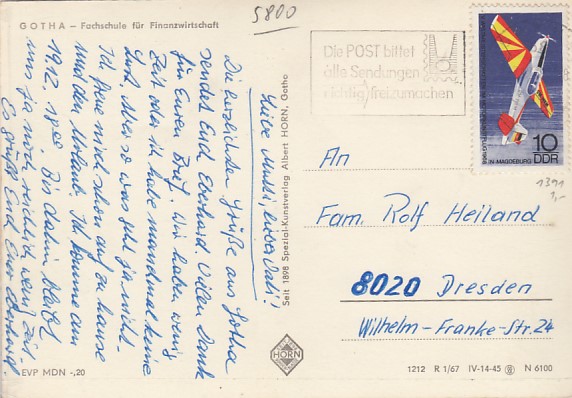 GOTHA — Fachschule für Finanzwirtschaft
5800
Liebe Mutti, lieber Vati!
Die herzlichsten Grüße aus Gotha
sendet Euch Eberhard. Vielen Dank
für Euren Brief. Wir haben wenig
Zeit oder ich habe manchmal keine
Lust. Aber so was geht ja nicht.
Ich freue mich schon auf zu Hause
und den Urlaub. Ich komme am
19.12. 18 Bis dahin bleibt
uns ja noch reichlich wenig Zeit.
Es grüßt Euch Euer Eberhard
Seit 1898 Spezial-Kunstverlag Albert HORN, Gotha
HORN
EVP MDN -,20
Die POST bittet
alle Sendungen
richtig freizumachen
10
DDR
IN MAGDEBURG
1391
1,-
An
Fam. Rolf Heiland
8020 Dresden
Wilhelm-Franke-Str. 24
1212 R 1/67 IV-14-45 N 6100